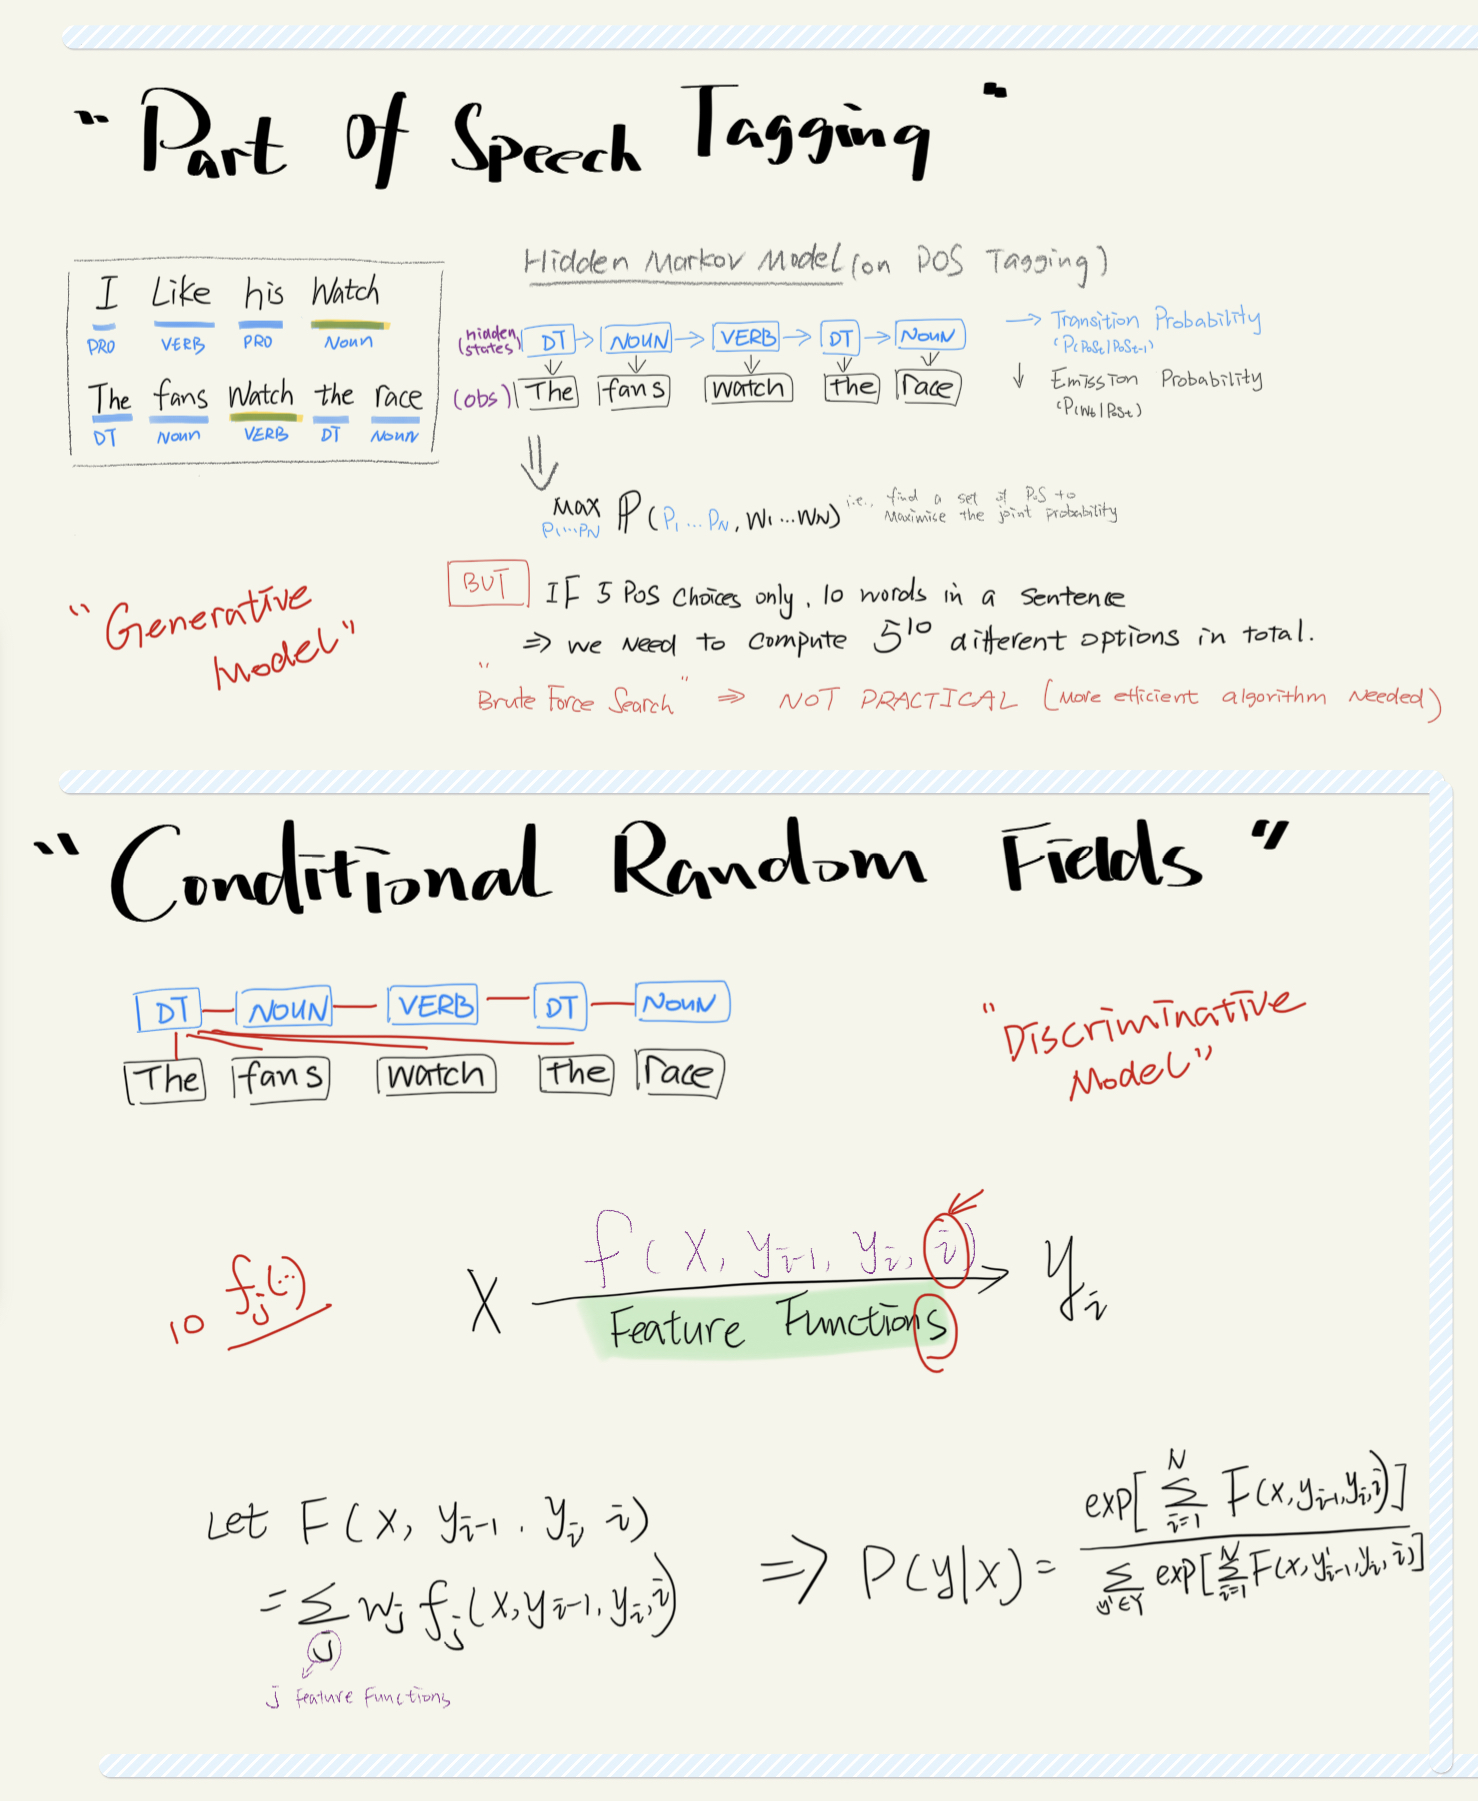 "Part of Speech Tagging"
I Like his Watch
PRO VERB PRO Noun
The fans Watch the race
DT Noun VERB DT NOUN
Hidden Markov Model (on POS Tagging)
(hidden states) DT → NOUN → VERB → DT → NOUN
(obs) The fans watch the race
→ Transition Probability
(P(POSt|POSt-1)
↓ Emission Probability
(P(Wt|POSt)
⇓
Max P1...PN P(P1...PN, W1...WN) i.e., find a set of POS to
Maximise the joint probability
"Generative Model"
BUT IF 5 POS choices only, 10 words in a sentence
⇒ we need to compute 5^10 different options in total.
"Brute Force Search" ⇒ NOT PRACTICAL (More efficient algorithm Needed)
"Conditional Random Fields"
DT NOUN VERB DT NOUN
The fans watch the race
"Discriminative Model"
10 fj(...)
X f(X, yi-1, yi, i) → yi
Feature Functions
Let F(x, yi-1, yi, i)
= Σj wj fj(x, yi-1, yi, i)
j Feature Functions
⇒ P(y|x) = exp[Σ i=1 N F(x, yi-1, yi, i)]
Σ y'∈Y exp[Σ i=1 N F(x, y'i-1, yi, i)]